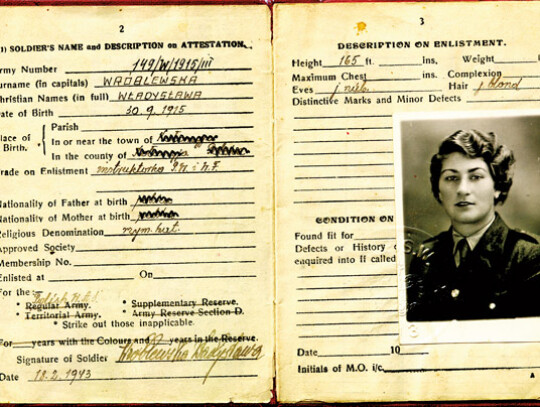 2
I) SOLDIER'S NAME and DESCRIPTION on ATTESTATION.
Army Number 149/W/1915/III
Surname (in capitals) WRÓBLEWSKA
Christian Names (in full) WŁADYSŁAWA
Date of Birth 30. 9. 1915
Place of Birth.
Parish
In or near the town of
In the county of
Trade on Enlistment instruktorka
Nationality of Father at birth
Nationality of Mother at birth
Religious Denomination rzym. kat.
Approved Society
Membership No.
Enlisted at On
For the:
* Regular Army. * Supplementary Reserve.
* Territorial Army. * Army Reserve Section D.
* Strike out those inapplicable.
For years with the Colours and years in the Reserve.
Signature of Soldier Wróblewska Władysława
Date 18. 2. 1943
3
DESCRIPTION ON ENLISTMENT.
Height 165 ft. ins. Weight
Maximum Chest ins. Complexion
Eyes Hair blond
Distinctive Marks and Minor Defects
CONDITION ON
Found fit for
Defects or History
enquired into if called
Date 10
Initials of M.O. i/c.
A